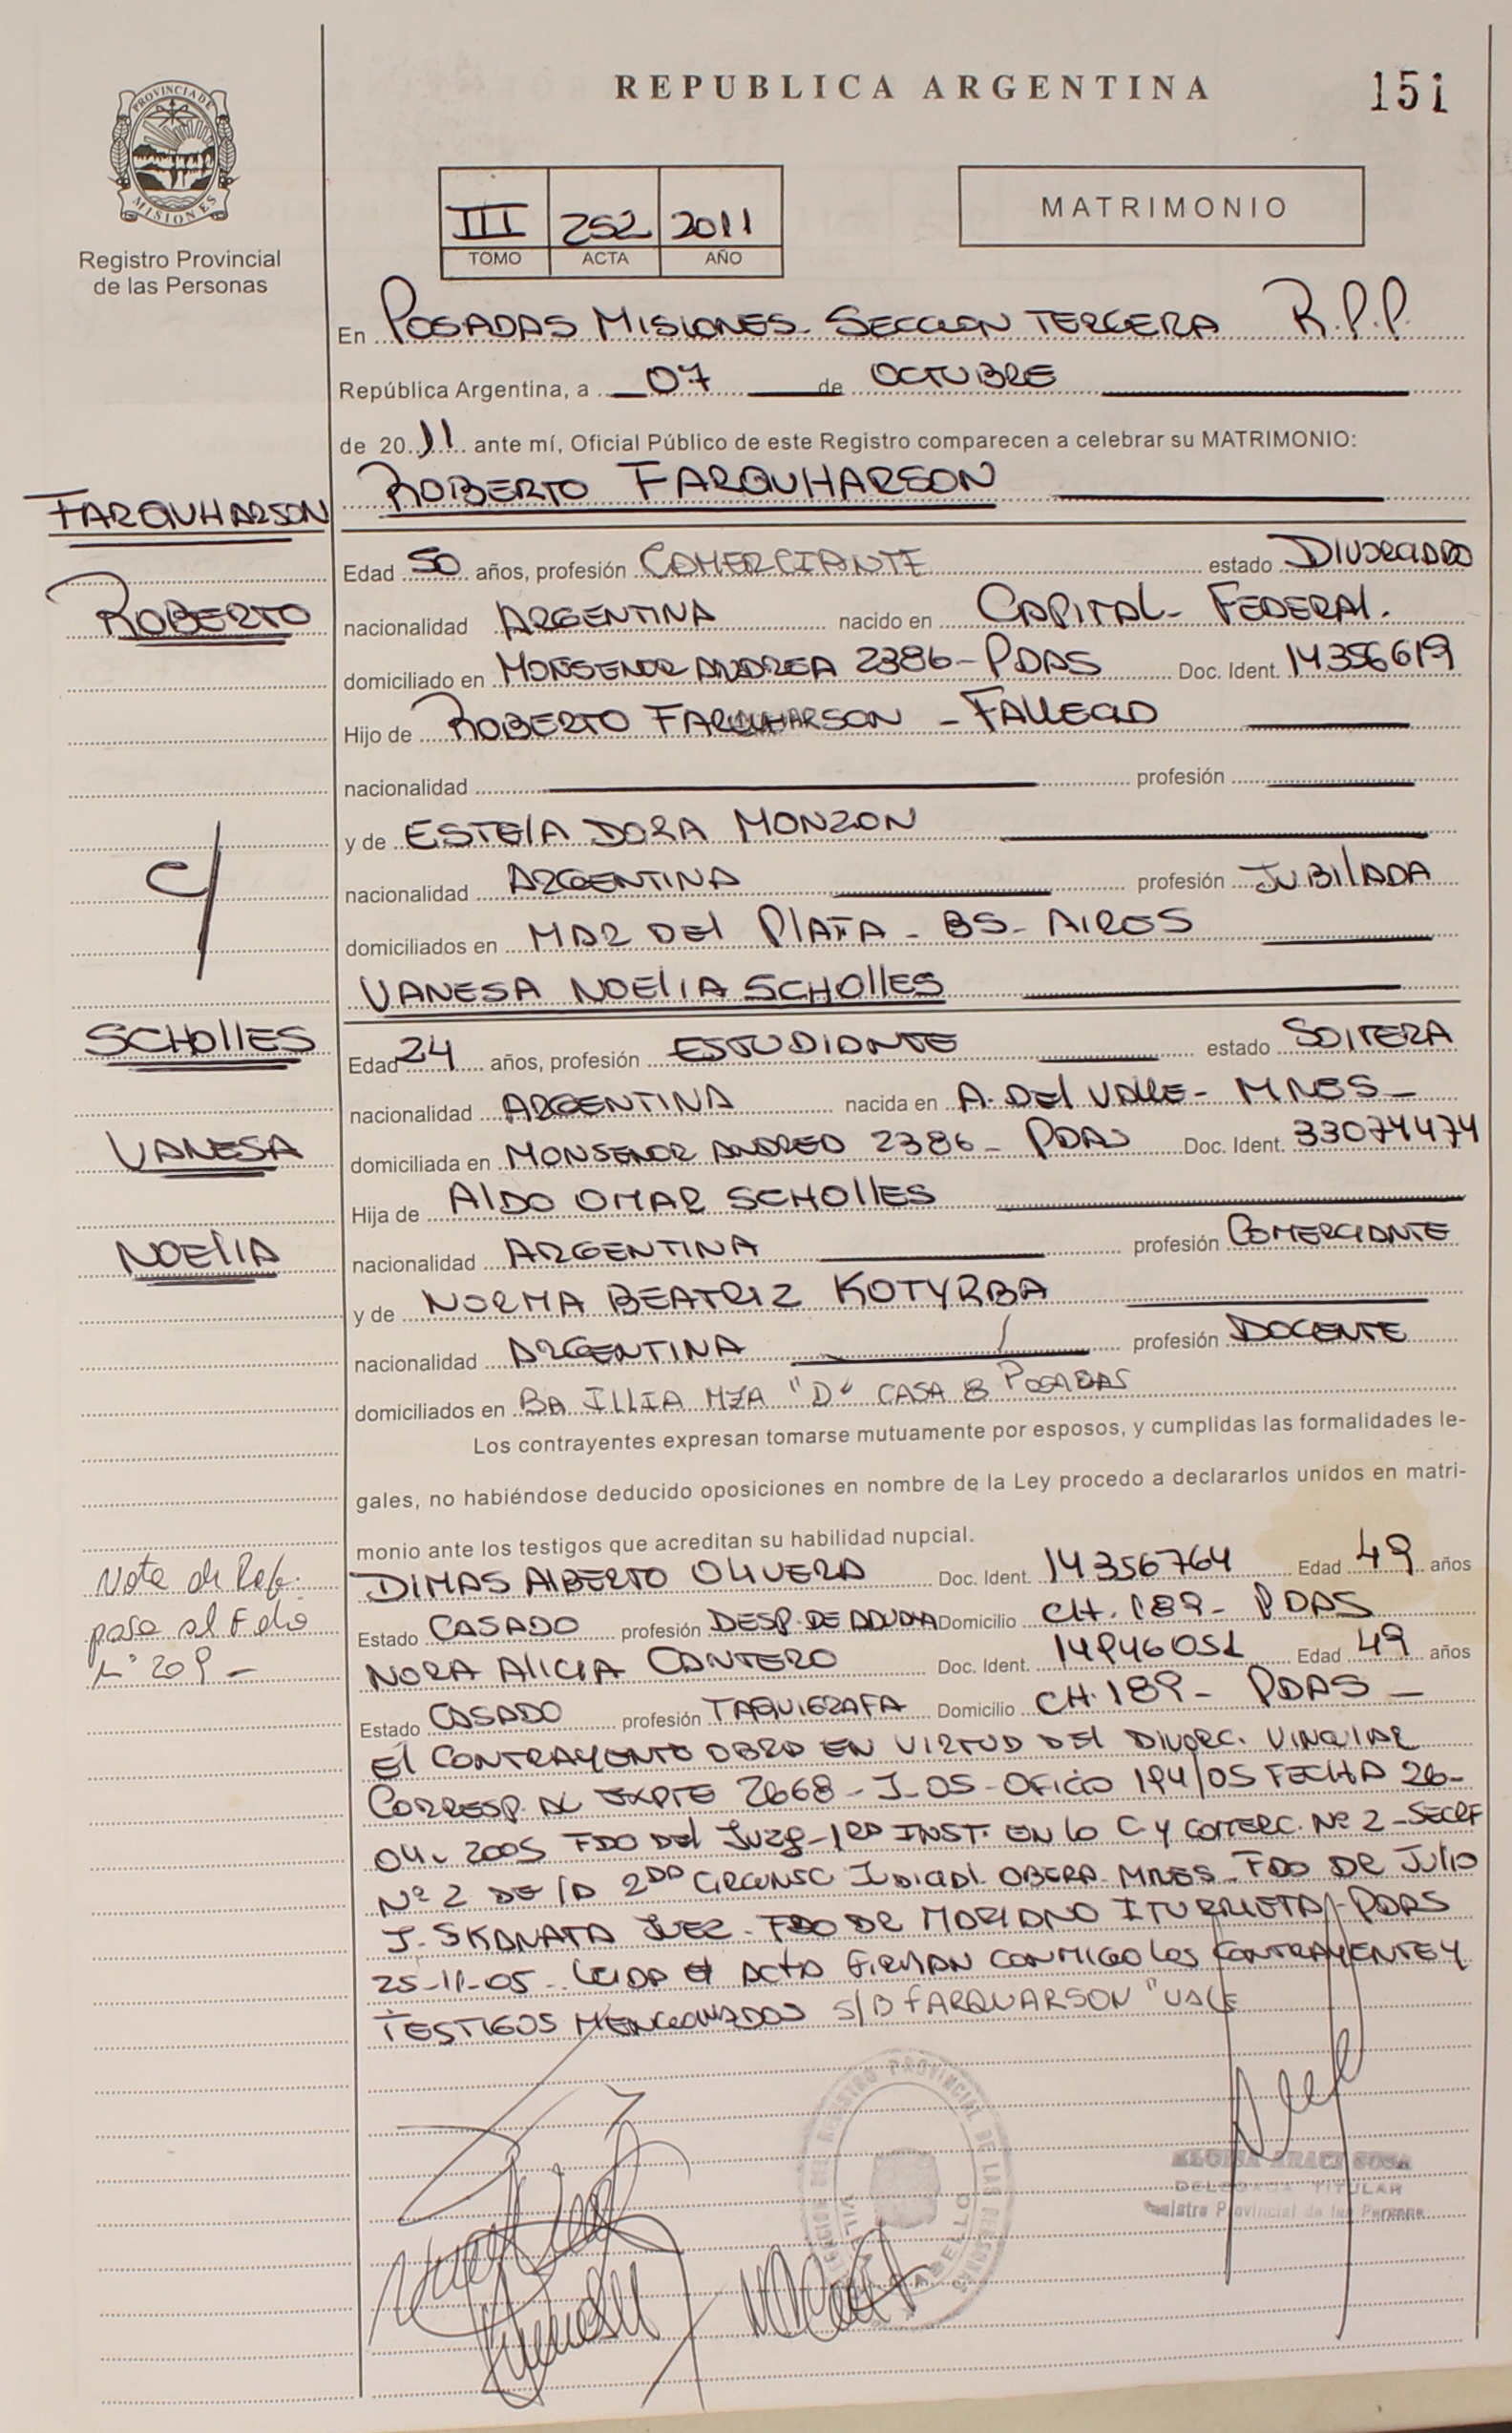 REPUBLICA ARGENTINA
151
PROVINCIA DE
MISIONES
Registro Provincial
de las Personas
III 252 2011
TOMO ACTA AÑO
MATRIMONIO
En POSADAS MISIONES- SECCION TERCERA R.P.P.
República Argentina, a 07 de OCTUBRE
de 2011 ante mí, Oficial Público de este Registro comparecen a celebrar su MATRIMONIO:
ROBERTO FARQUHARSON
FARQUHARSON
Edad 50 años, profesión COMERCIANTE estado DIVORCIADO
ROBERTO
nacionalidad ARGENTINA nacido en CAPITAL- FEDERAL.
domiciliado en MONSENOR ANDREA 2386-PDAS Doc. Ident. 14356619
Hijo de ROBERTO FARQUHARSON - FALLECID
nacionalidad profesión
y de ESTELA DORA MONZON
C/
nacionalidad ARGENTINA profesión JUBILADA
domiciliados en MAR DEL PLATA - BS- AIRES
VANESA NOELIA SCHOLLES
SCHOLLES
Edad 24 años, profesión ESTUDIANTE estado SOLTERA
nacionalidad ARGENTINA nacida en A. DEL VALLE- MNES-
VANESA
domiciliada en MONSENOR ANDREA 2386- PDAS Doc. Ident. 33074474
Hija de ALDO OMAR SCHOLLES
NOELIA
nacionalidad ARGENTINA profesión COMERCIANTE
y de NORMA BEATRIZ KOTYRBA
nacionalidad ARGENTINA profesión DOCENTE
domiciliados en BA ILLIA MZA "D" CASA 8 POSADAS
Los contrayentes expresan tomarse mutuamente por esposos, y cumplidas las formalidades le-
gales, no habiéndose deducido oposiciones en nombre de la Ley procedo a declararlos unidos en matri-
monio ante los testigos que acreditan su habilidad nupcial.
Nota de Ref.
pasa al Folio
N° 209 -
DIMAS ALBERTO OLIVERA Doc. Ident. 14356764 Edad 49 años
Estado CASADO profesión DESP. DE ADUANA Domicilio CH. 189- PDAS
NORA ALICIA CANTERO Doc. Ident. 14946051 Edad 49 años
Estado CASADO profesión TAQUIGRAFA Domicilio CH. 189- PDAS -
EL CONTRAYENTE OBRA EN VIRTUD DEL DIVORC. VINCULAR
CORRESP. AL EXPTE 2668-J-05-OFICIO 194/05 FECHA 26-
04- 2005 FDO DEL JUZG-1RA INST. EN LO C y COMERC. Nº 2-SECRE
Nº 2 DE LA 2DA CIRCUNSC JUDICIAL OBERA MNES. FDO DR JULIO
J. SKANATA JUEZ- FDO DR MARIANO ITURRIETA-PDAS
25-11-05- LEIDA EL ACTA FIRMAN CONMIGO LOS CONTRAYENTE Y
TESTIGOS MENCIONADOS S/B FARQUARSON "VALE
DELEGACION DEL REGISTRO PROVINCIAL DE LAS PERSONAS
VILLA CABELLO
ELOISA ARACI SOSA
DELEGADA TITULAR
Registro Provincial de las Personas